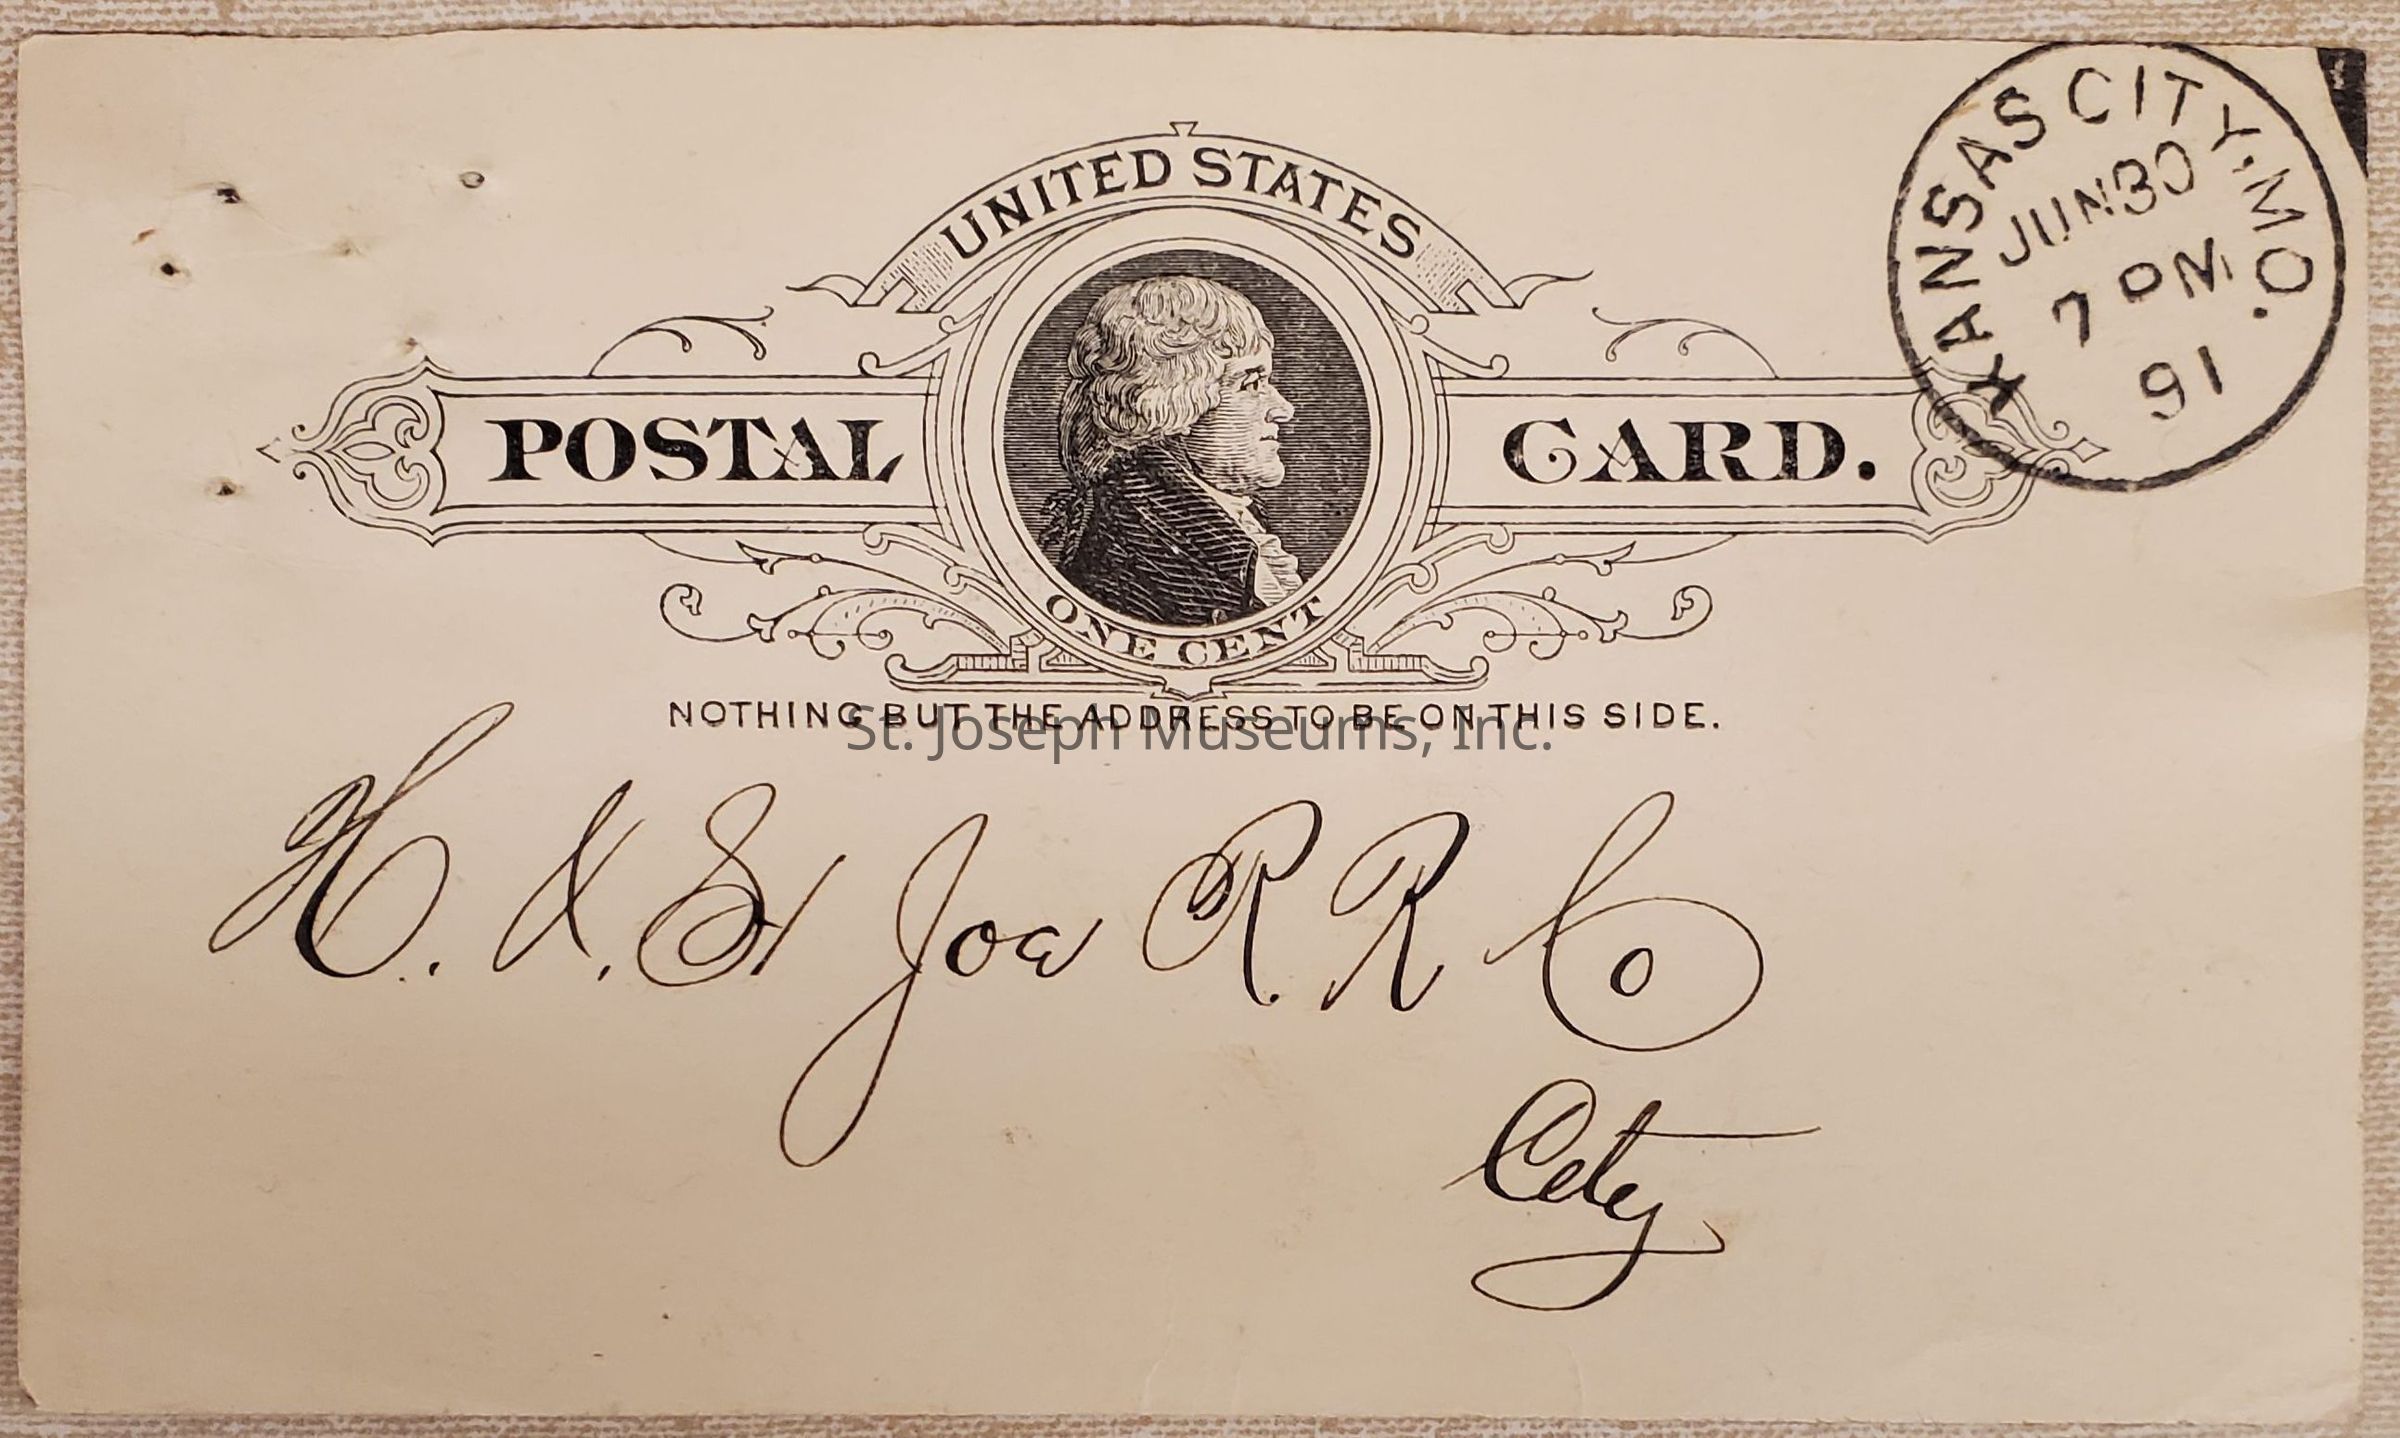 UNITED STATES
POSTAL CARD.
ONE CENT
NOTHING BUT THE ADDRESS TO BE ON THIS SIDE.
St. Joseph Museums, Inc.
KANSAS CITY. MO.
JUN 30
7 PM
91
H. & St Joe R. R Co
City